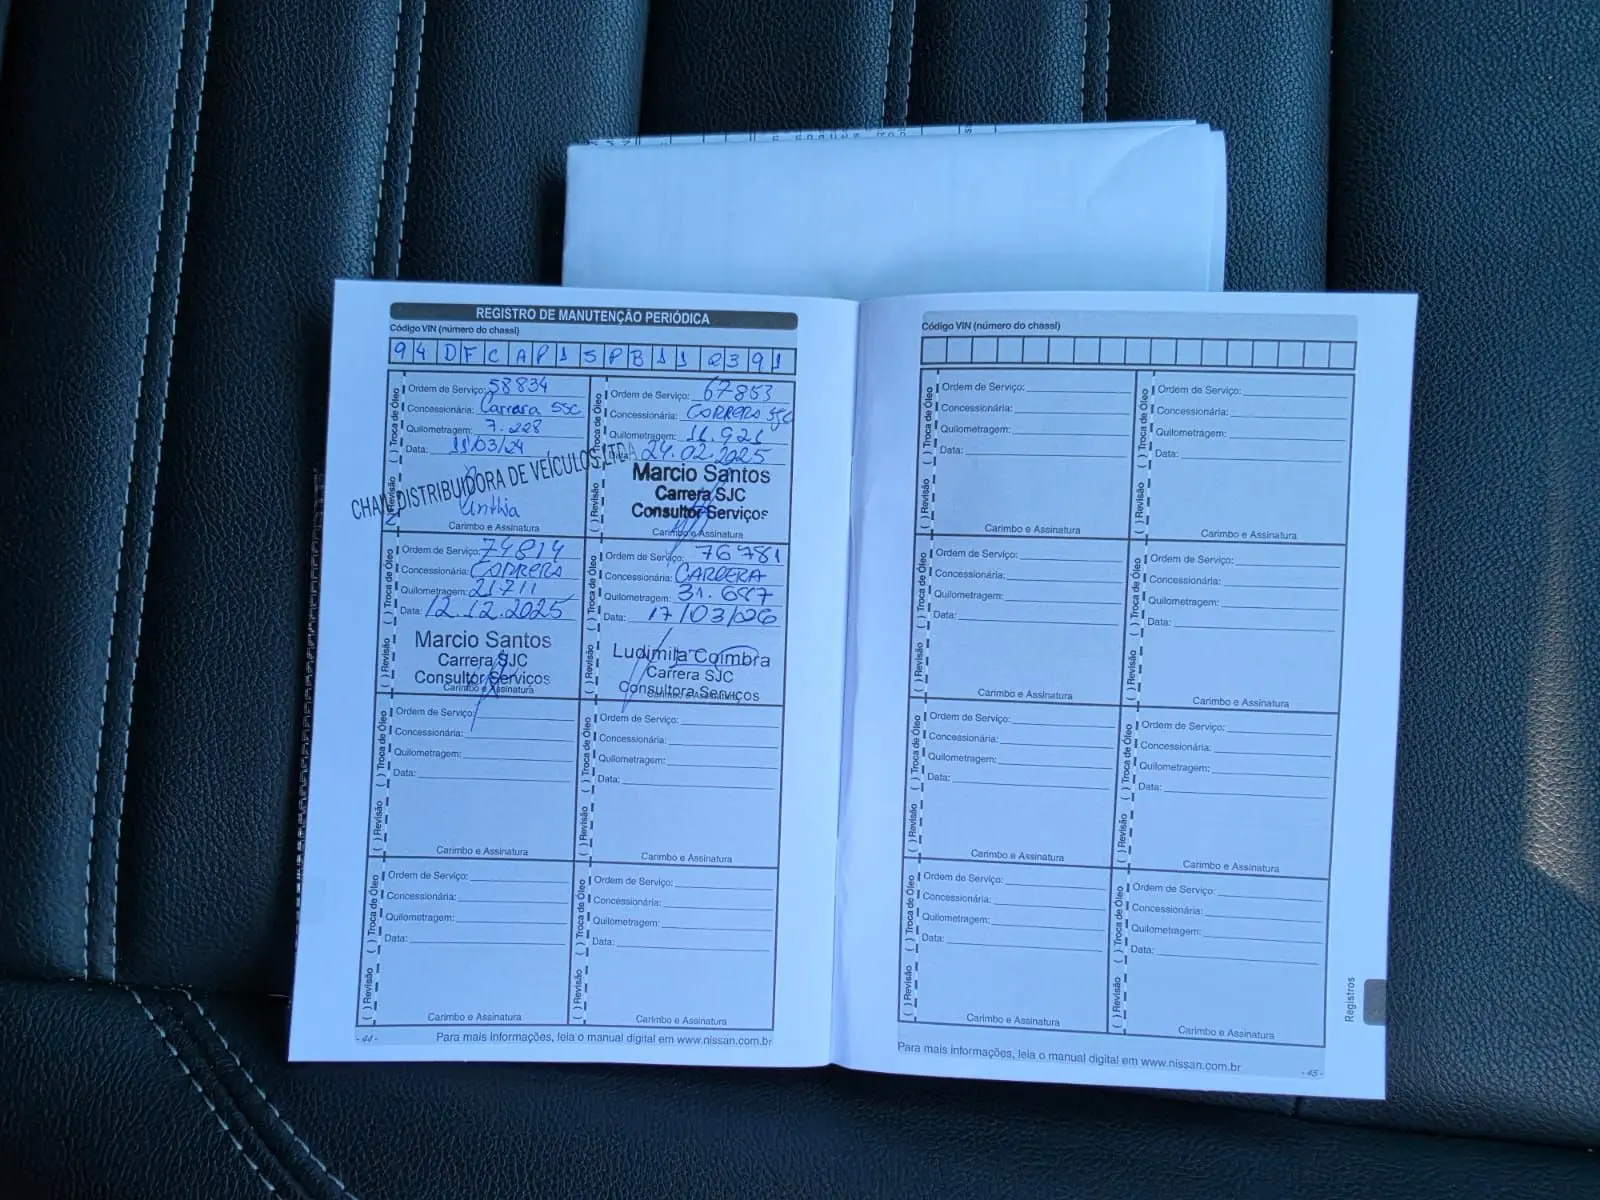 REGISTRO DE MANUTENÇÃO PERIÓDICA
Código VIN (número do chassi)
94DFCAP15PB11Q391
( ) Revisão ( ) Troca de Óleo
Ordem de Serviço: 58834
Concessionária: Carrara SSC
Quilometragem: 7.228
Data: 11/03/24
CHAI DISTRIBUIDORA DE VEÍCULOS LTDA
Cinthia
Carimbo e Assinatura
( ) Revisão ( ) Troca de Óleo
Ordem de Serviço: 67853
Concessionária: CORRERA SJC
Quilometragem: 11.921
Data: 24.02.2025
Marcio Santos
Carrera SJC
Consultor Serviços
Carimbo e Assinatura
( ) Revisão ( ) Troca de Óleo
Ordem de Serviço: 74814
Concessionária: CORRERA
Quilometragem: 21711
Data: 12.12.2025
Marcio Santos
Carrera SJC
Consultor Serviços
Carimbo e Assinatura
( ) Revisão ( ) Troca de Óleo
Ordem de Serviço: 76781
Concessionária: CARRERA
Quilometragem: 31.687
Data: 17/03/026
Ludimila Coimbra
Carrera SJC
Consultora Serviços
Carimbo e Assinatura
( ) Revisão ( ) Troca de Óleo
Ordem de Serviço:
Concessionária:
Quilometragem:
Data:
Carimbo e Assinatura
( ) Revisão ( ) Troca de Óleo
Ordem de Serviço:
Concessionária:
Quilometragem:
Data:
Carimbo e Assinatura
( ) Revisão ( ) Troca de Óleo
Ordem de Serviço:
Concessionária:
Quilometragem:
Data:
Carimbo e Assinatura
( ) Revisão ( ) Troca de Óleo
Ordem de Serviço:
Concessionária:
Quilometragem:
Data:
Carimbo e Assinatura
- 44 -
Para mais informações, leia o manual digital em www.nissan.com.br
Código VIN (número do chassi)
( ) Revisão ( ) Troca de Óleo
Ordem de Serviço:
Concessionária:
Quilometragem:
Data:
Carimbo e Assinatura
( ) Revisão ( ) Troca de Óleo
Ordem de Serviço:
Concessionária:
Quilometragem:
Data:
Carimbo e Assinatura
( ) Revisão ( ) Troca de Óleo
Ordem de Serviço:
Concessionária:
Quilometragem:
Data:
Carimbo e Assinatura
( ) Revisão ( ) Troca de Óleo
Ordem de Serviço:
Concessionária:
Quilometragem:
Data:
Carimbo e Assinatura
( ) Revisão ( ) Troca de Óleo
Ordem de Serviço:
Concessionária:
Quilometragem:
Data:
Carimbo e Assinatura
( ) Revisão ( ) Troca de Óleo
Ordem de Serviço:
Concessionária:
Quilometragem:
Data:
Carimbo e Assinatura
( ) Revisão ( ) Troca de Óleo
Ordem de Serviço:
Concessionária:
Quilometragem:
Data:
Carimbo e Assinatura
( ) Revisão ( ) Troca de Óleo
Ordem de Serviço:
Concessionária:
Quilometragem:
Data:
Carimbo e Assinatura
Registros
Para mais informações, leia o manual digital em www.nissan.com.br
- 45 -